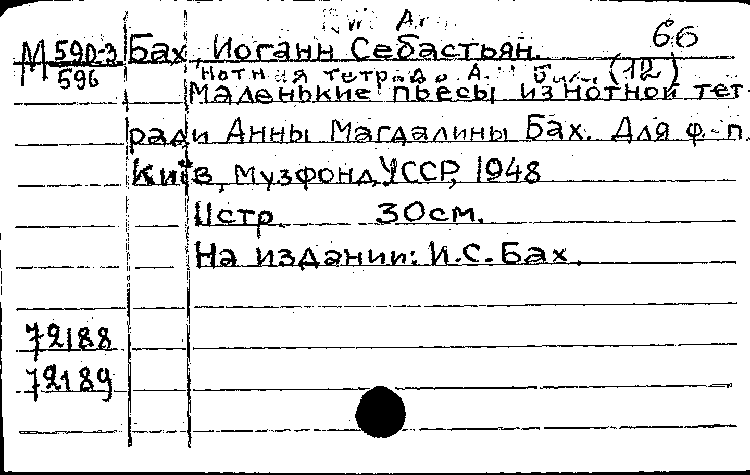 66
М 590-3
596
Бах, Иоганн Себастьян.
Нотная тетрадь А. (12)
Маленькие пьесы из нотной тет-
ради Анны Магдалины Бах. Для ф.-п.
Київ, Музфонд УССР, 1948
11стр. 30см.
На издании: И.С.Бах.
72188
72189